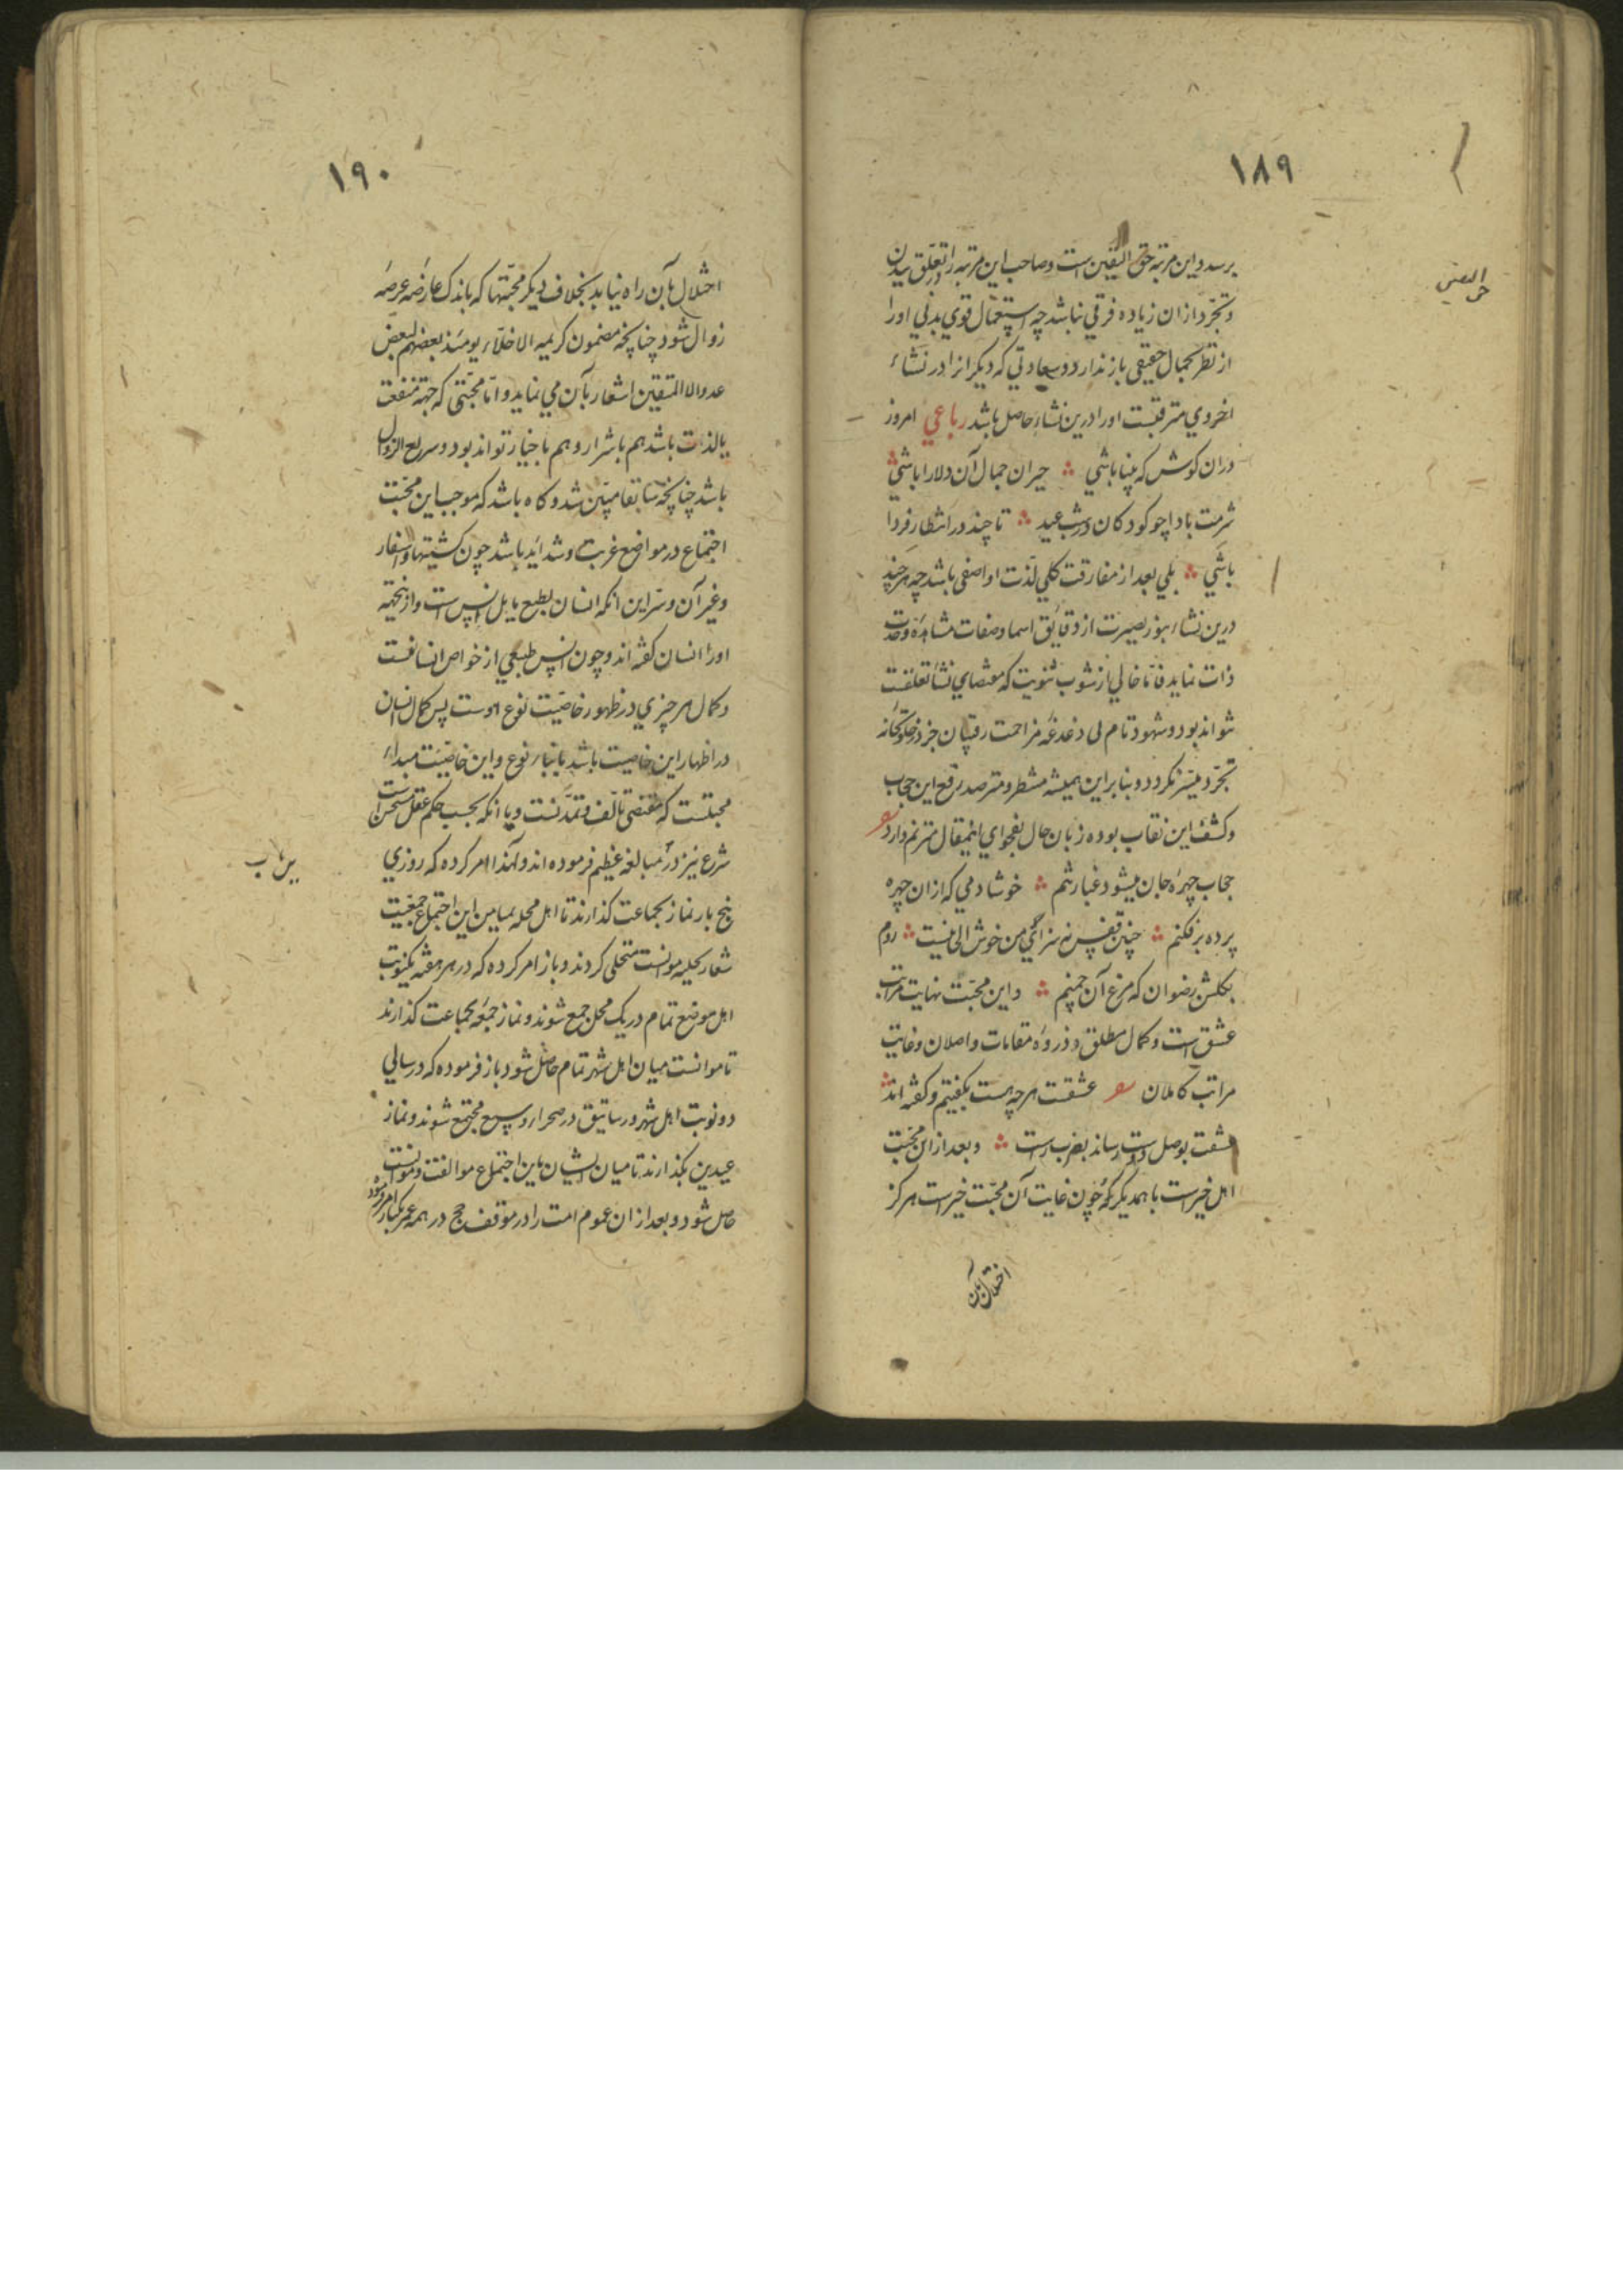 ۱۸۹
حق الیقین
برسد و این مرتبه حق الیقین است و صاحب این مرتبه را در تعلق ببدن
و تجرّد از ان زیاده فرقی نباشد چه استعمال قوي بدني اورا
از نظر بجمال حقیقی باز ندارد و سعادتي که دیکرانرا در نشاء
اخروي مترقبست اورا درین نشاء حاصل باشد رباعي امروز
دران کوش که بینا باشي ؞ حیران جمال آن دلارا باشي ؞
شرمت بادا چو کودکان در شب عید ؞ تا چند در انتظار فردا
باشي ؞ بلي بعد از مفارقت کلي لذت او اصفی باشد چه هر چند
درین نشاء بنور بصیرت از دقایق اسما و صفات مشاهدهٔ وحدت
ذات نماید فامّا خالي از شوب ثنویت که مقتضاي نشأ تعلقست
نتواند بود و شهود تام بی دغدغهٔ مزاحمت رقیبان جز در خلوتخانهٔ
تجرّد میسّر نکردد و بنابراین همیشه منتظر و مترصد رفع این حجاب
و کشف این نقاب بوده زبان حال بفحواي اینمقال مترنم دارد شعر
حجاب چهرهٔ جان میشود غبار تنم ؞ خوشا دمي که از ان چهره
پرده برفکنم ؞ چنین قفس نه سزاي من خوش الحانیست ؞ روم
بکلشن رضوان که مرغ آن چمنم ؞ و این محبّت نهایت مراتب
عشق است و کمال مطلق و ذروهٔ مقامات واصلان و غایت
مراتب کاملان شعر عشقست هر چه هست بکفتیم و کفته اند ؞
عشقت بوصل دوست رساند بضرب دست ؞ و بعد از این محبّت
اهل خیر است با همدیکر که چون غایت آن محبّت خیر است هرکز
اختلال بآن
۱۹۰
اختلال بآن راه نیابد بخلاف دیکر محبّتها که باندک عارضهٔ عرضهٔ
زوال شود چنانچه مضمون کریمه الاخلّاء یومئذ بعضهم لبعض
عدو الا المتقین اشعار بآن می نماید و امّا محبّتی که جهة منفعت
یا لذت باشد هم باشرار و هم باخیار تواند بود و سریع الزوال
باشد چنانچه سابقا مبیّن شد و کاه باشد که موجب این محبّت
اجتماع در مواضع غربت و شداید باشد چون کشتیها و اسفار
و غیر آن و سّر این آنکه انسان بطبع مایل انس است و ازینجهه
اورا انسان کفته اند و چون انس طبیعي از خواص انسانست
و کمال هر چیزي در ظهور خاصیّت نوع اوست پس کمال انسان
در اظهار این خاصیت باشد بابناء نوع و این خاصیّت مبداء
محبتست که مقتضی تألف و تمدّنست و با انکه بحسب حکم عقل مستحسن است
شرع نیز در آن مبالغه عظیم فرموده اند و لهذا امر کرده که روزي
پنج بار نماز بجماعت کذارند تا اهل محله بمیامن این اجتماع جمعیّت
شعار بحلیه موانست متحلی کردند و باز امر کرده که در هر هفته یکنوبت
اهل موضع تمام در یک محل جمع شوند و نماز جمعه بجماعت کذارند
تا موانست میان اهل شهر تمام حاصل شود باز فرموده که در سالي
دو نوبت اهل شهر و رساتیق در صحراء وسیع مجتمع شوند و نماز
عیدین بکذارند تا میان ایشان باین اجتماع موالفت و موانست
حاصل شود و بعد از ان عموم امت را در موقف حج در همه عمر یکبار امر فرموده